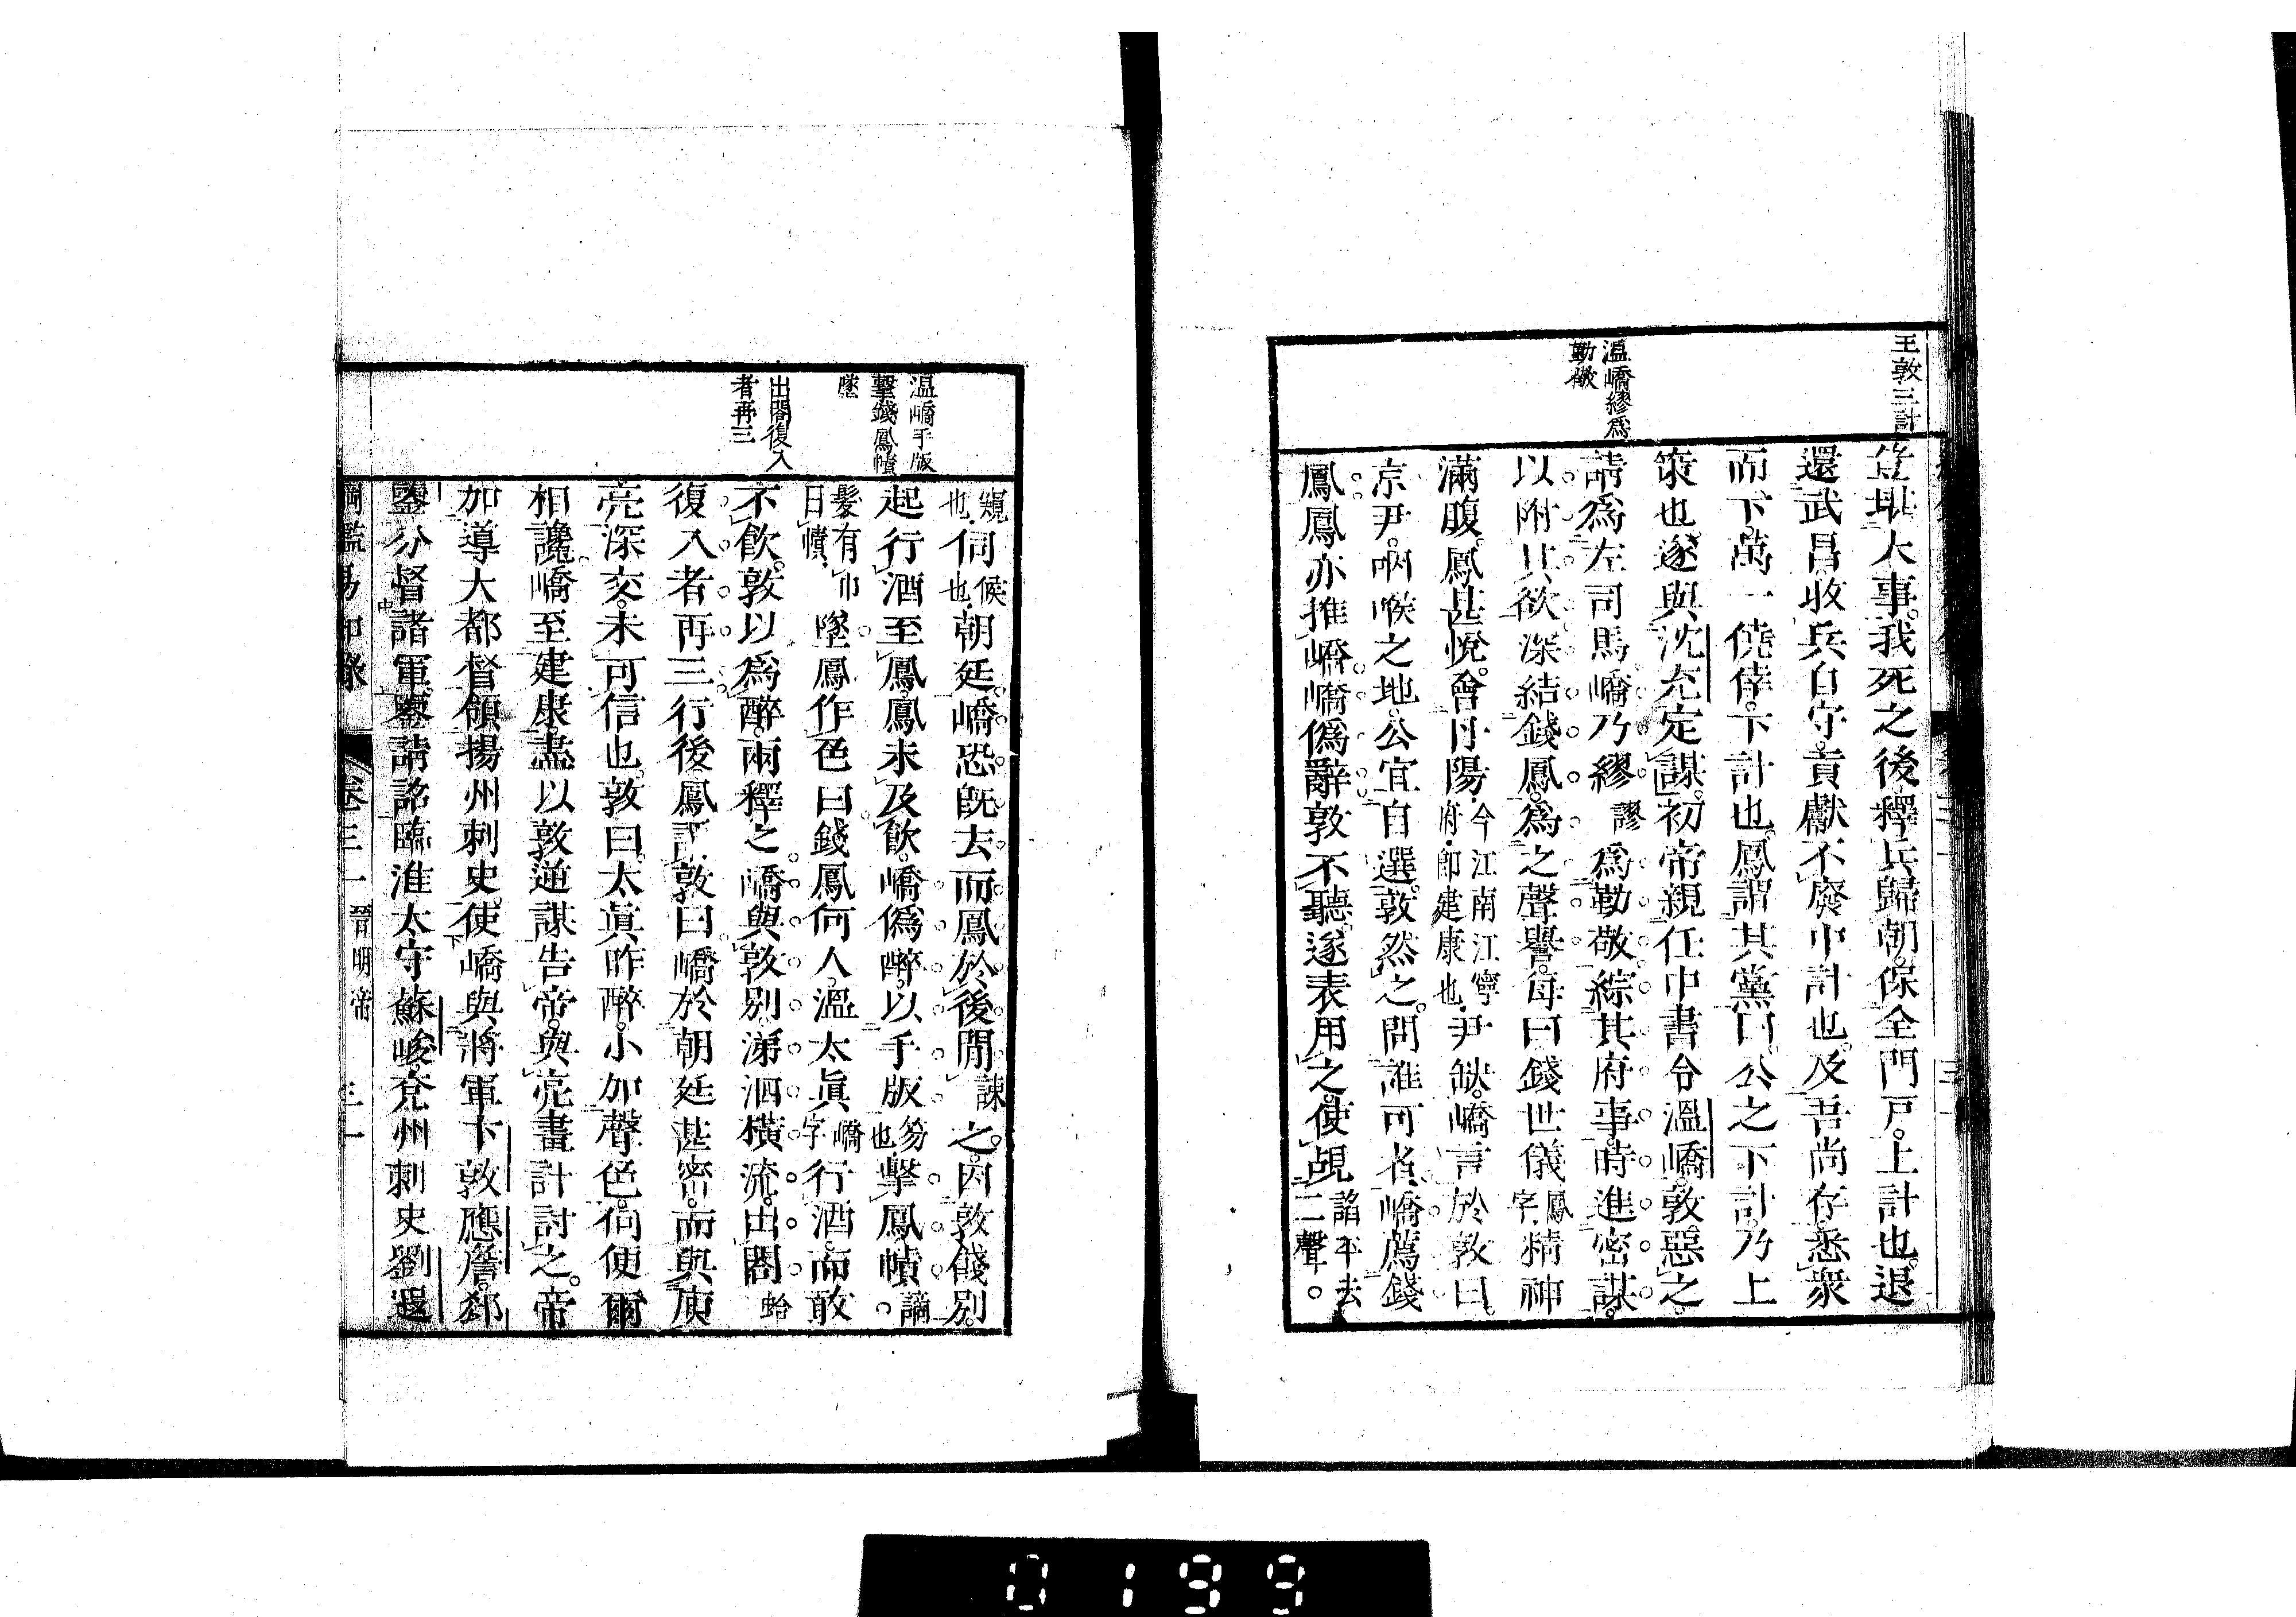 王敦三計
溫嶠繆爲
勤敬
豈堪大事。我死之後。釋兵歸朝。保全門戸。上計也。退
還武昌。收兵自守。貢獻不廢。中計也。及吾尚存。悉衆
而下。萬一僥倖。下計也。鳳謂其黨曰。公之下計。乃上
策也。遂與沈充定謀。初帝親任中書令溫嶠。敦惡之。
請爲左司馬。嶠乃繆謬爲勤敬。綜其府事。時進密謀。
以附其欲。深結錢鳳。爲之聲譽。每曰。錢世儀鳳字精神
滿腹。鳳甚悅。會丹陽今江南江寧府。卽建康也。尹缺。嶠言於敦曰。
京尹。咽喉之地。公宜自選。敦然之。問誰可者。嶠薦錢
鳳。鳳亦推嶠。嶠僞辭。敦不聽。遂表用之。使覘諂平去二聲。
溫嶠手版
擊錢鳳幘
墜
出閣復入
者再三
窺也。伺候也。朝廷。嶠恐旣去而鳳於後閒諫之。因敦餞別。
起行酒。至鳳。鳳未及飮。嶠僞醉。以手版笏也。擊鳳幘謫。
髮有巾曰幘。墜。鳳作色曰。錢鳳何人。溫太眞嶠字行酒。而敢
不飮。敦以爲醉。兩釋之。嶠與敦別。涕泗橫流。出閤蛤
復入者再三。行後。鳳謂敦曰。嶠於朝廷甚密。而與庾
亮深交。未可信也。敦曰。太眞昨醉。小加聲色。何便爾
相讒。嶠至建康。盡以敦逆謀告帝。與亮畫計討之。帝
加導大都督領揚州刺史。使嶠與將軍卞敦。應詹。郄
鑒分督諸軍。鑒請詔臨淮太守蘇峻。兗州刺史劉遐
綱鑑易知錄 卷三一 晉明帝 三一
0199